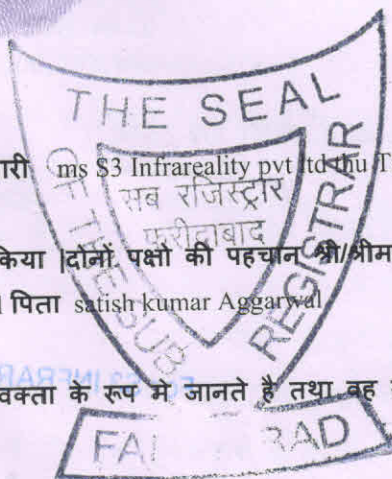 THE SEAL
OF THE SUB
REGISTRAR
सब रजिस्ट्रार
फरीदाबाद
ms S3 Infrareality pvt ltd thu
किया |दोनों पक्षो की पहचान श्री/श्रीम
पिता satish kumar Aggarwal
वक्ता के रूप मे जानते है तथा वह